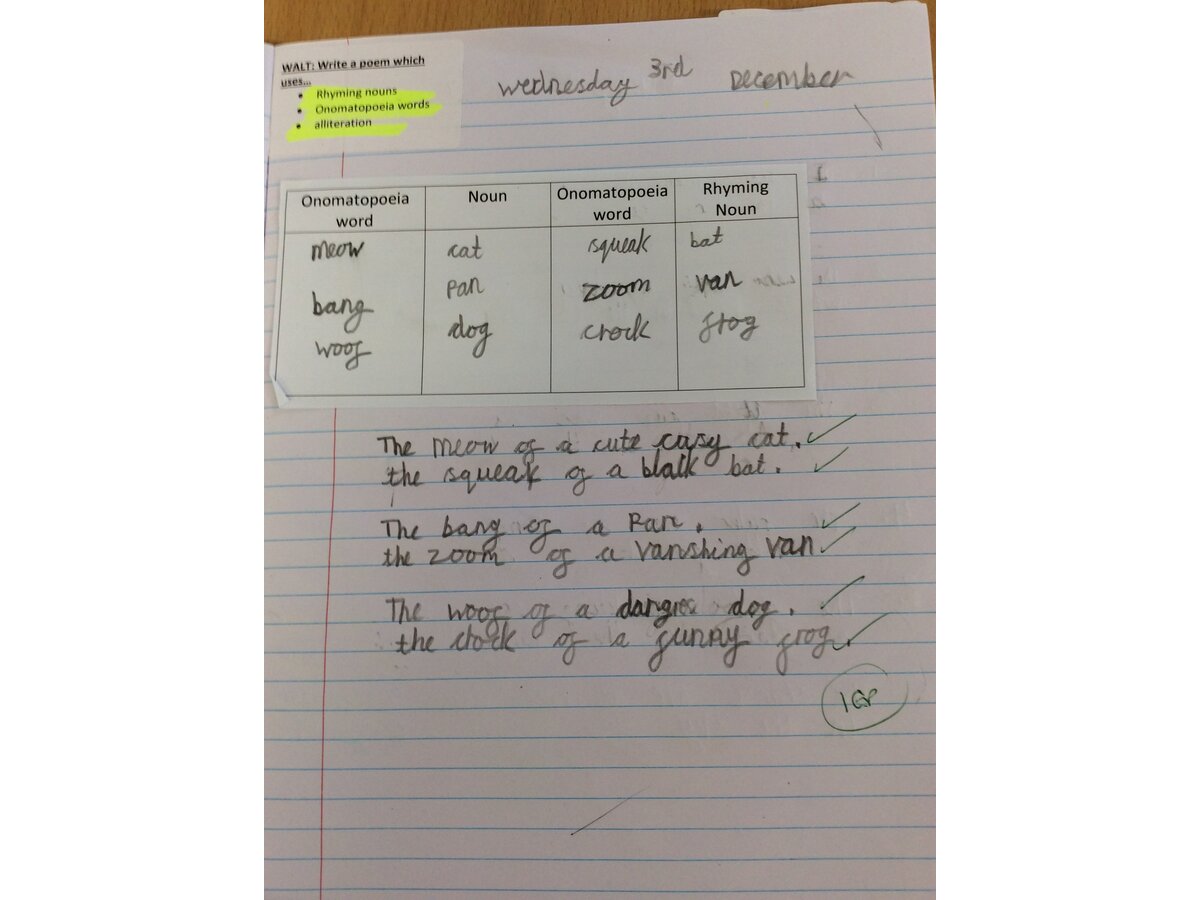 WALT: Write a poem which
uses...
• Rhyming nouns
• Onomatopoeia words
• alliteration
wednesday 3rd December
Onomatopoeia word Noun Onomatopoeia word Rhyming Noun
meow cat squeak bat
bang pan zoom van
woof dog crock frog
The meow of a cute casy cat.
the squeak of a blalk bat.
The bang of a Pan.
the zoom of a vanshing van
The woof of a dangres dog.
the crock of a funny frog.